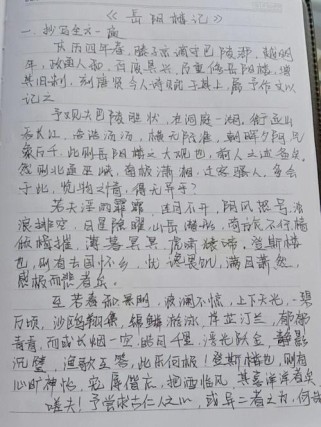 《岳阳楼记》
一、抄写全文一篇
庆历四年春，滕子京谪守巴陵郡。越明
年，政通人和，百废具兴，乃重修岳阳楼，增
其旧制，刻唐贤今人诗赋于其上，属予作文以
记之
予观夫巴陵胜状，在洞庭一湖。衔远山
吞长江，浩浩汤汤，横无际涯，朝晖夕阴，气
象万千，此则岳阳楼之大观也，前人之述备矣。
然则北通巫峡，南极潇湘，迁客骚人，多会
于此，览物之情，得无异乎？
若夫淫雨霏霏，连月不开，阴风怒号，浊
浪排空，日星隐曜，山岳潜形，商旅不行，樯
倾楫摧，薄暮冥冥，虎啸猿啼。登斯楼
也，则有去国怀乡，忧谗畏讥，满目萧然，
感极而悲者矣。
至若春和景明，波澜不惊，上下天光，一碧
万顷，沙鸥翔集，锦鳞游泳，岸芷汀兰，郁郁
青青，而或长烟一空，皓月千里，浮光跃金，静影
沉璧，渔歌互答，此乐何极！登斯楼也，则有
心旷神怡，宠辱偕忘，把酒临风，其喜洋洋者矣
嗟夫！予尝求古仁人之心，或异二者之为，何哉